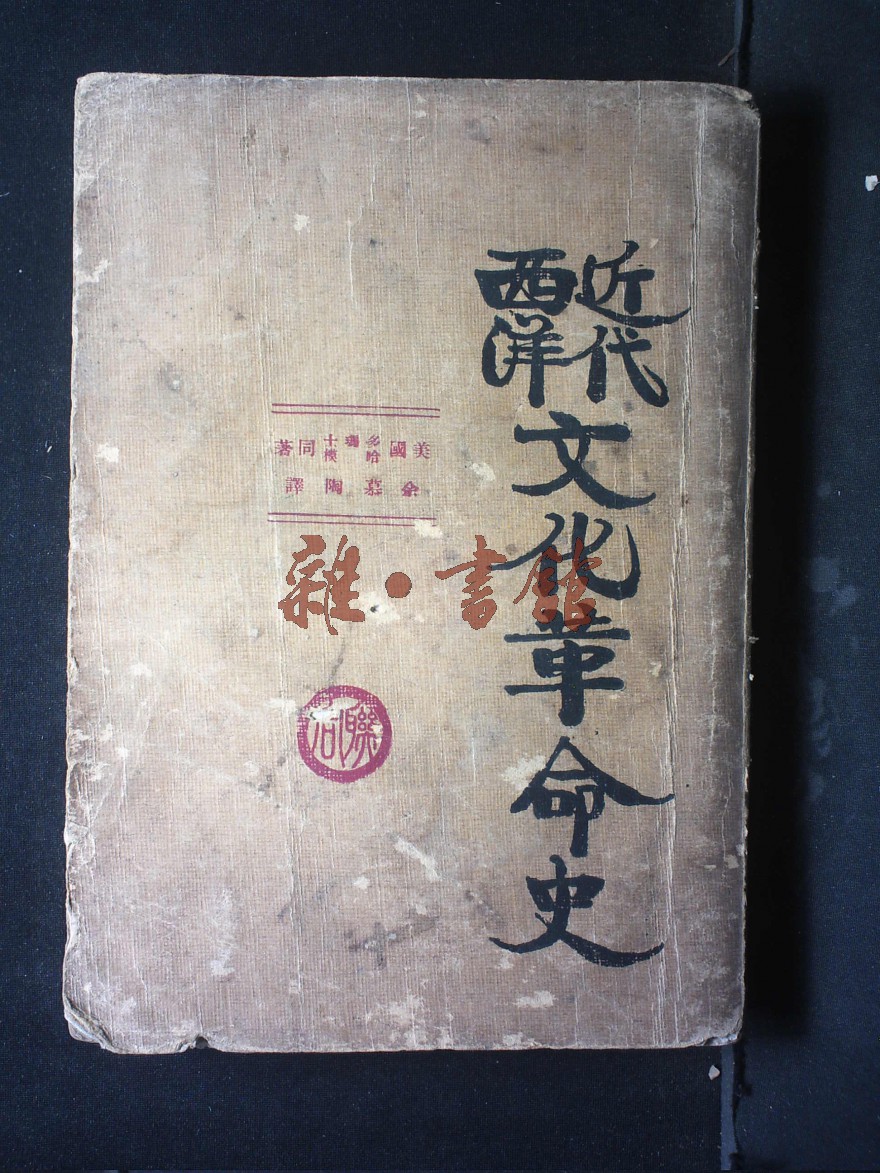 近代
西洋
文化革命史
美國 多瑪士 哈模 同著
余慕陶譯
雜·書館
聯合